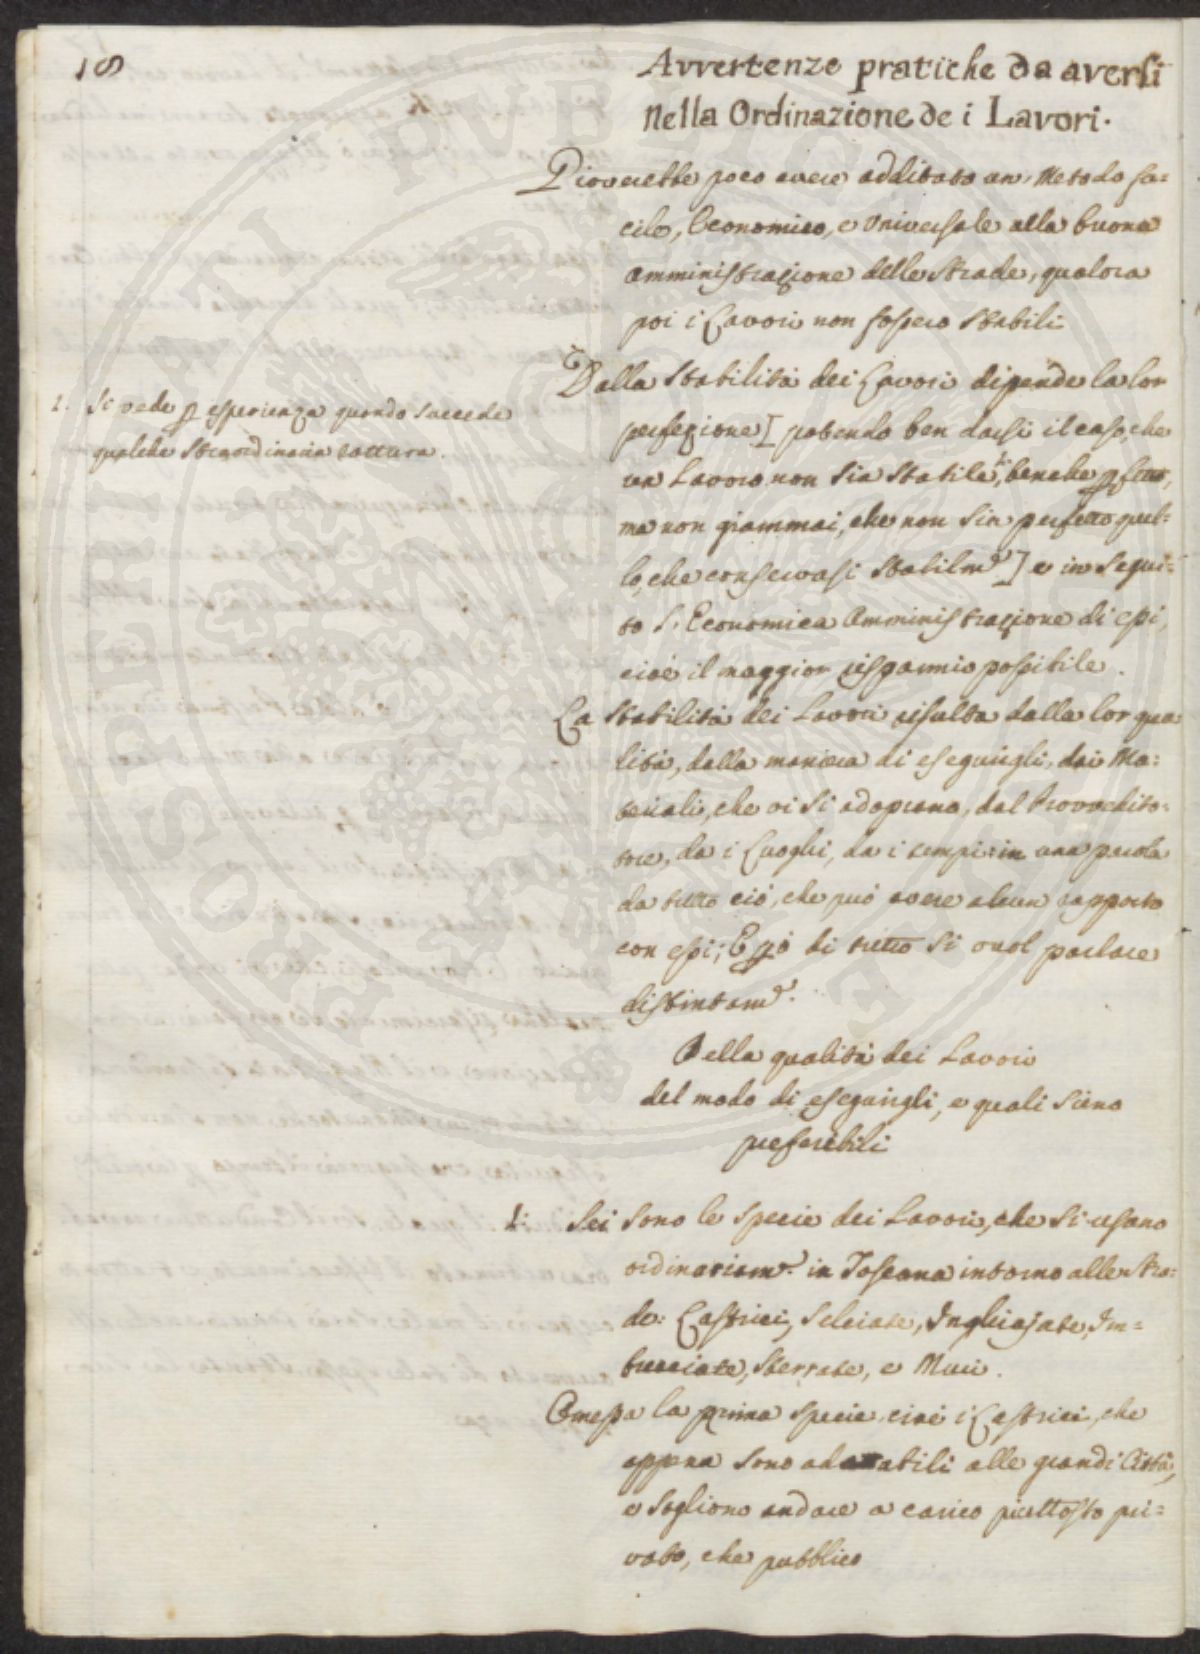 18
Avvertenze pratiche da aversi
nella Ordinazione de i Lavori.
Gioverebbe poco avere additato un Metodo fa=
cile, Economico, e Universale alla buona
amministrazione delle Strade, qualora
poi i Lavori non fossero stabili
Dalla stabilità dei Lavori dipende la lor
perfezione [ potendo ben darsi il caso, che
un Lavoro non sia stabile, benche pfetto,
ma non giammai, che non sia perfetto quel=
lo, che conservasi stabilmᵉ ] e in segui=
to l'Economica Amministrazione di essi,
cioè il maggior risparmio possibile.
1. Si vede p esperienza quando succede
qualche straordinaria rottura.
La stabilità dei Lavori risulta dalla lor qua
lità, dalla maniera di eseguirgli, dai Ma=
teriali, che vi si adoprano, dal Provvedito=
re, da i Luoghi, da i tempi: in una parola
da tutto ciò, che può avere alcun rapporto
con essi; E pò di tutto si vuol parlare
distintamᵉ.
Della qualità dei Lavori
del modo di eseguirgli, e quali sieno
preferibili
1: Sei sono le specie dei Lavori, che si usano
ordinariamᵉ. in Toscana intorno alle Stra=
de: Lastrici, Selciate, Inghiajate, Im=
brecciate, Sterrate, e Muri.
Omessa la prima specie cioè i Lastrici, che
appena sono adattabili alle grandi Città,
e sogliono andare a carico piuttosto pri=
vato, che pubblico